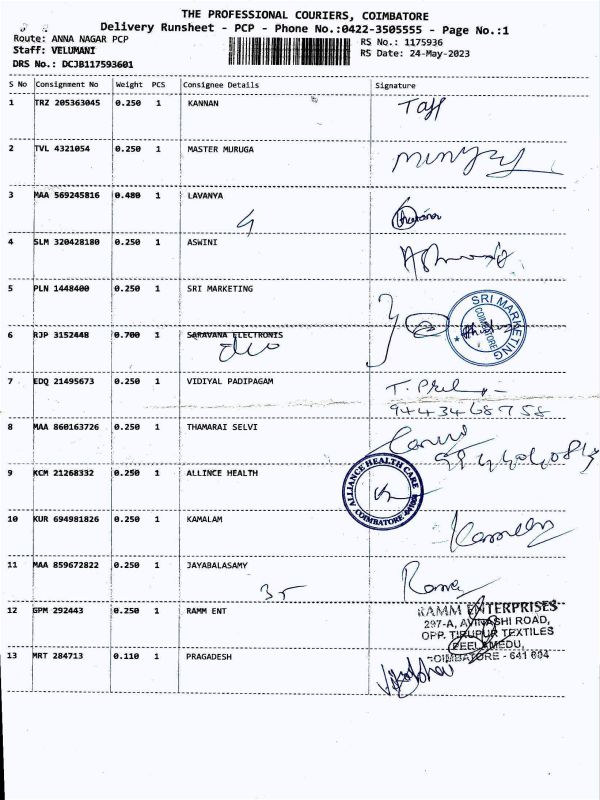 THE PROFESSIONAL COURIERS, COIMBATORE
Delivery Runsheet - PCP - Phone No.:0422-3505555 - Page No.:1
Route: ANNA NAGAR PCP
RS No.: 1175936
Staff: VELUMANI
RS Date: 24-May-2023
DRS No.: DCJB117593601
S No Consignment No Weight PCS Consignee Details Signature
1 TRZ 205363045 0.250 1 KANNAN
2 TVL 4321054 0.250 1 MASTER MURUGA
3 MAA 569245816 0.480 1 LAVANYA
4 SLM 320428180 0.250 1 ASWINI
5 PLN 1448400 0.250 1 SRI MARKETING
SRI MARKETING
COIMBATORE
6 RJP 3152448 0.700 1 SARAVANA ELECTRONIS
7 EDQ 21495673 0.250 1 VIDIYAL PADIPAGAM
9443468758
8 MAA 860163726 0.250 1 THAMARAI SELVI
9 KCM 21268332 0.250 1 ALLINCE HEALTH
ALLIANCE HEALTH CARE
COIMBATORE
10 KUR 694981826 0.250 1 KAMALAM
11 MAA 859672822 0.250 1 JAYABALASAMY
35
12 GPM 292443 0.250 1 RAMM ENT
RAMM ENTERPRISES
297-A, AVINASHI ROAD,
OPP. TIRUPUR TEXTILES
PEELAMEDU,
COIMBATORE - 641 004
13 MRT 284713 0.110 1 PRAGADESH